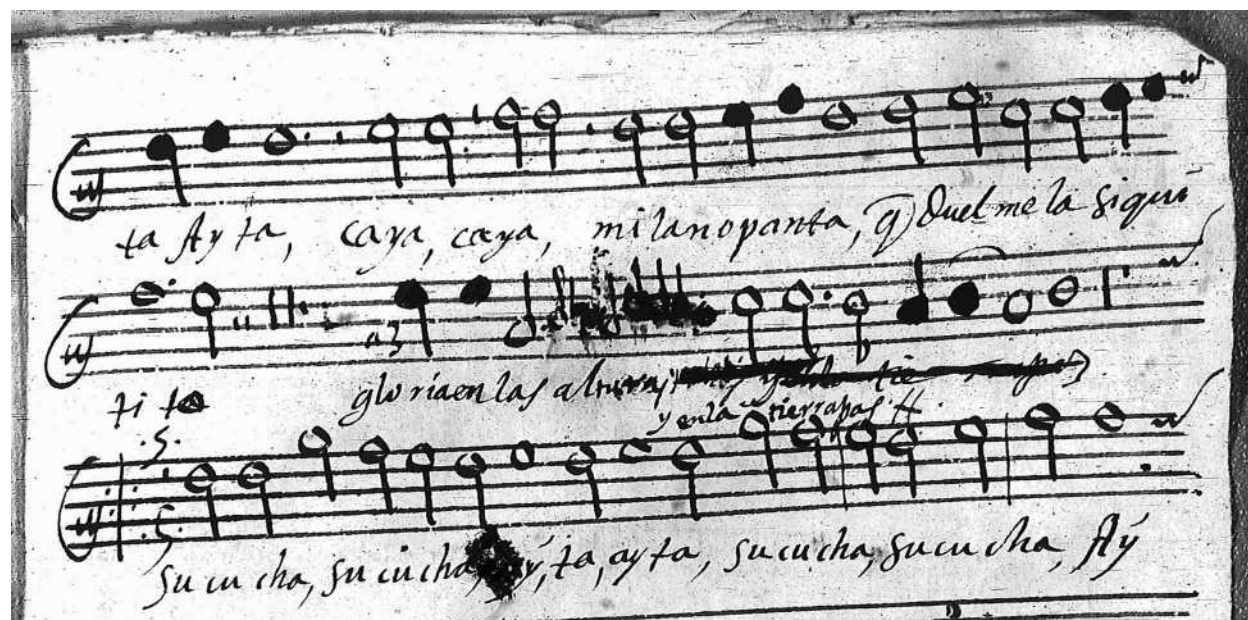 ta Ay ta, caya, caya, milanopanta, q̃ Duel me la siqui
ti ta gloria en las alturas
y en la tierra pas
.S.
S.
su cu cha, su cu cha, ta, ay ta, su cu cha, su cu cha, Aý